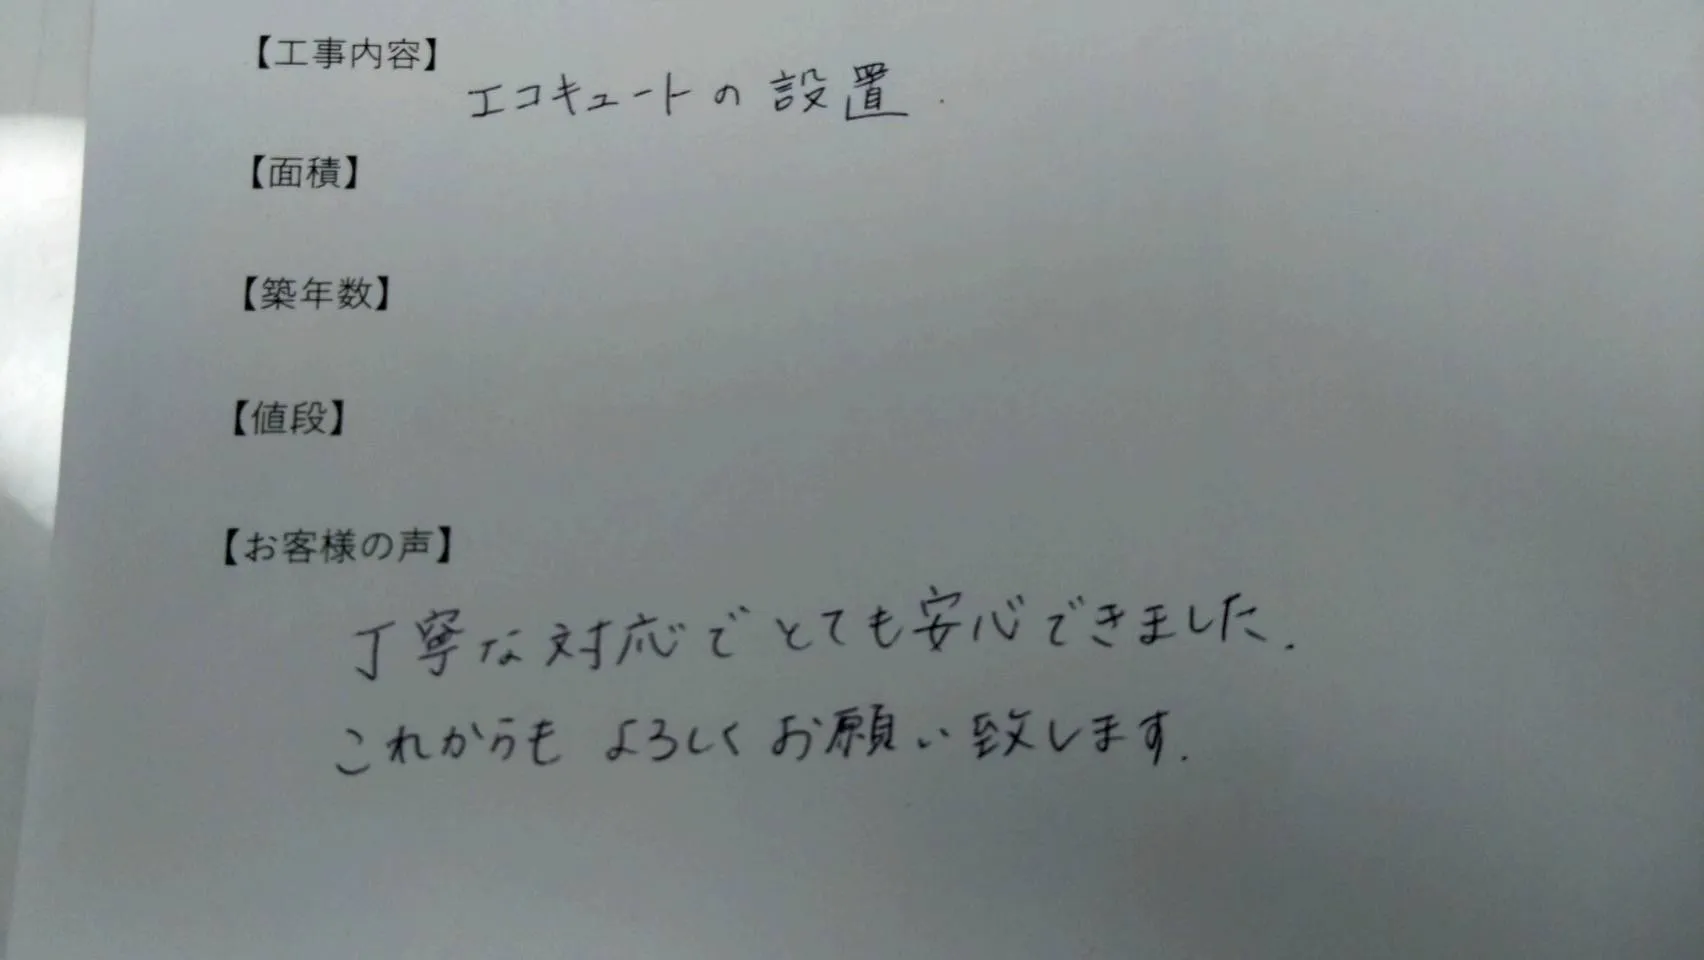 【工事内容】
エコキュートの設置.
【面積】
【築年数】
【値段】
【お客様の声】
丁寧な対応でとても安心できました.
これからもよろしくお願い致します.